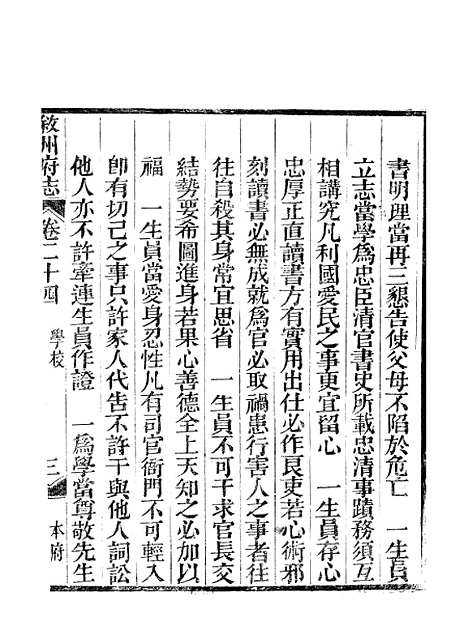 書明理當再三懇告使父母不陷於危亡　一生員
立志當學爲忠臣清官書史所載忠清事蹟務須互
相講究凡利國愛民之事更宜留心　一生員存心
忠厚正直讀書方有實用出仕必作良吏若心術邪
刻讀書必無成就爲官必取禍患行害人之事者往
往自殺其身常宜思省　一生員不可干求官長交
結勢要希圖進身若果心善德全上天知之必加以
福　一生員當愛身忍性凡有司官衙門不可輕入
卽有切己之事只許家人代告不許干與他人詞訟
他人亦不許牽連生員作證　一爲學當尊敬先生
敘州府志　卷二十四　學校　三　本府